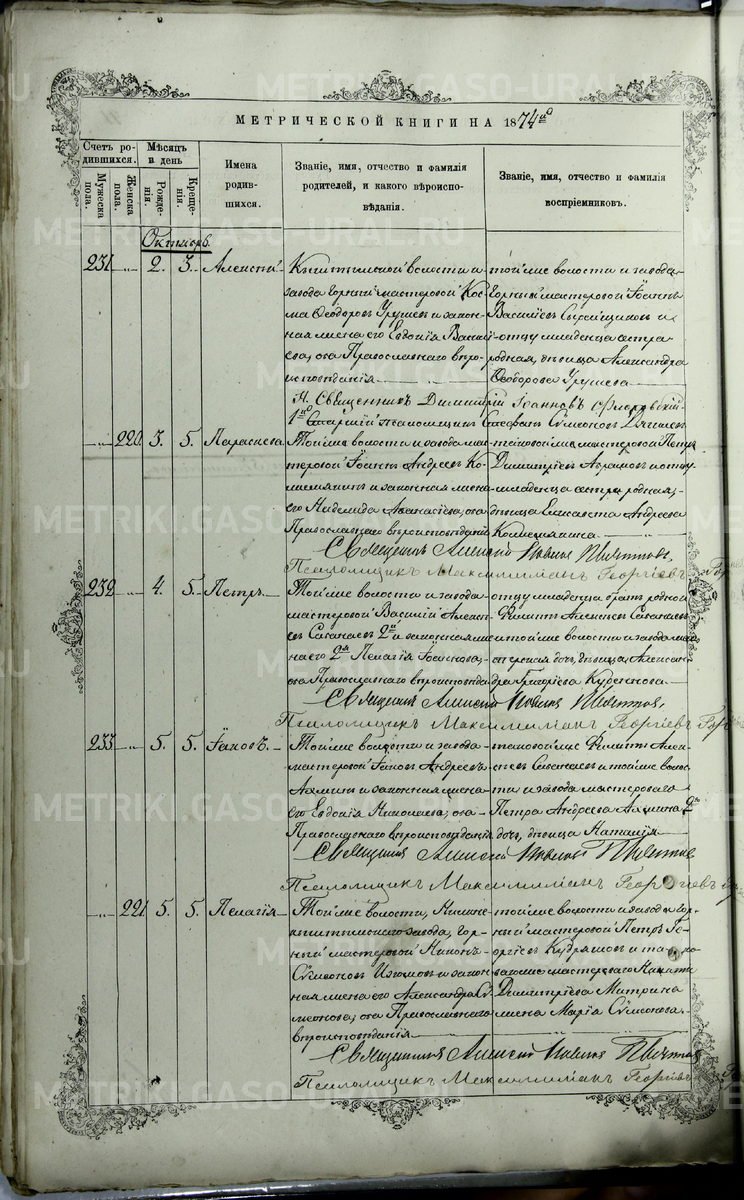 МЕТРИЧЕСКОЙ КНИГИ НА 1874й
Счетъ ро-
дившихся.
Мужеска пола.
Женска пола.
Мѣсяцъ
и день
Рожде-
нія.
Креще-
нія.
Имена
родив-
шихся.
Званіе, имя, отчество и фамилія
родителей, и какого вѣроиспо-
вѣданія.
Званіе, имя, отчество и фамилія
воспріемниковъ.
Октябрь.
231 2. 3. Алексѣй
Кыштымской волости и
завода горный мастеровой Кос-
ма Ѳеодоровъ и закон-
ная жена его Евдокія Васил-
ева, оба Православнаго вѣро-
исповѣданія
той же волости и завода
горный мастеровой Іоаннъ
Василіевъ и
отцу младенца сестра
родная, дѣвица Александра
Ѳеодорова
Священникъ Димитрій Іоанновъ Флоровскій
Старшій псаломщикъ Стефанъ Сѵмеоновъ
220. 3. 5. Параскева
Той же волости и завода ма-
стеровой Іоаннъ Андреевъ
и законная жена
его Аѳанасіева, оба
Православнаго вѣроисповѣданія
таковой же мастеровой Петръ
Димитріевъ Абрамовъ и отцу
младенца сестра родная,
дѣвица Елисавета Андреева
Священникъ Алексій
Псаломщикъ Максимиліанъ Георгіевъ
232 4. 5. Петръ
Той же волости и завода
мастеровой Василій Алексѣ-
евъ 2й и законная же-
на его 2я Пелагія Іоаннова,
оба Православнаго вѣроисповѣда
отцу младенца братъ родной
Филиппъ Алексѣевъ
и той же волости и завода мас-
терская дочь, дѣвица Алексан-
дра Григоріева
Священникъ Алексій
Псаломщикъ Максимиліанъ Георгіевъ
233 5. 5. Іаковъ.
Той же волости и завода
мастеровой Іаковъ Андреевъ
и законная жена
его Евдокія Николаева, оба
Православнаго вѣроисповѣданія
таковой же Филиппъ Алек-
сѣевъ и той же волос-
ти и завода мастероваго
Петра Андреева
дочь, дѣвица Наталія
Священникъ Алексій
Псаломщикъ Максимиліанъ Георгіевъ
221 5. 5. Пелагія
Той же волости, Нижне-
кыштымскаго завода, гор-
ный мастеровой Никонъ
Сѵмеоновъ Изюмовъ и закон-
ная жена его Александра Сѵ-
меонова, оба Православнаго
вѣроисповѣданія
той же волости и завода гор-
ный мастеровой Петръ Ге-
оргіевъ Кудряшовъ и та-
коваго же мастероваго
Димитріева Митрина
жена Марія Сѵмеонова.
Священникъ Алексій
Псаломщикъ Максимиліанъ Георгіевъ
METRIKI.GASO-URAL.RU